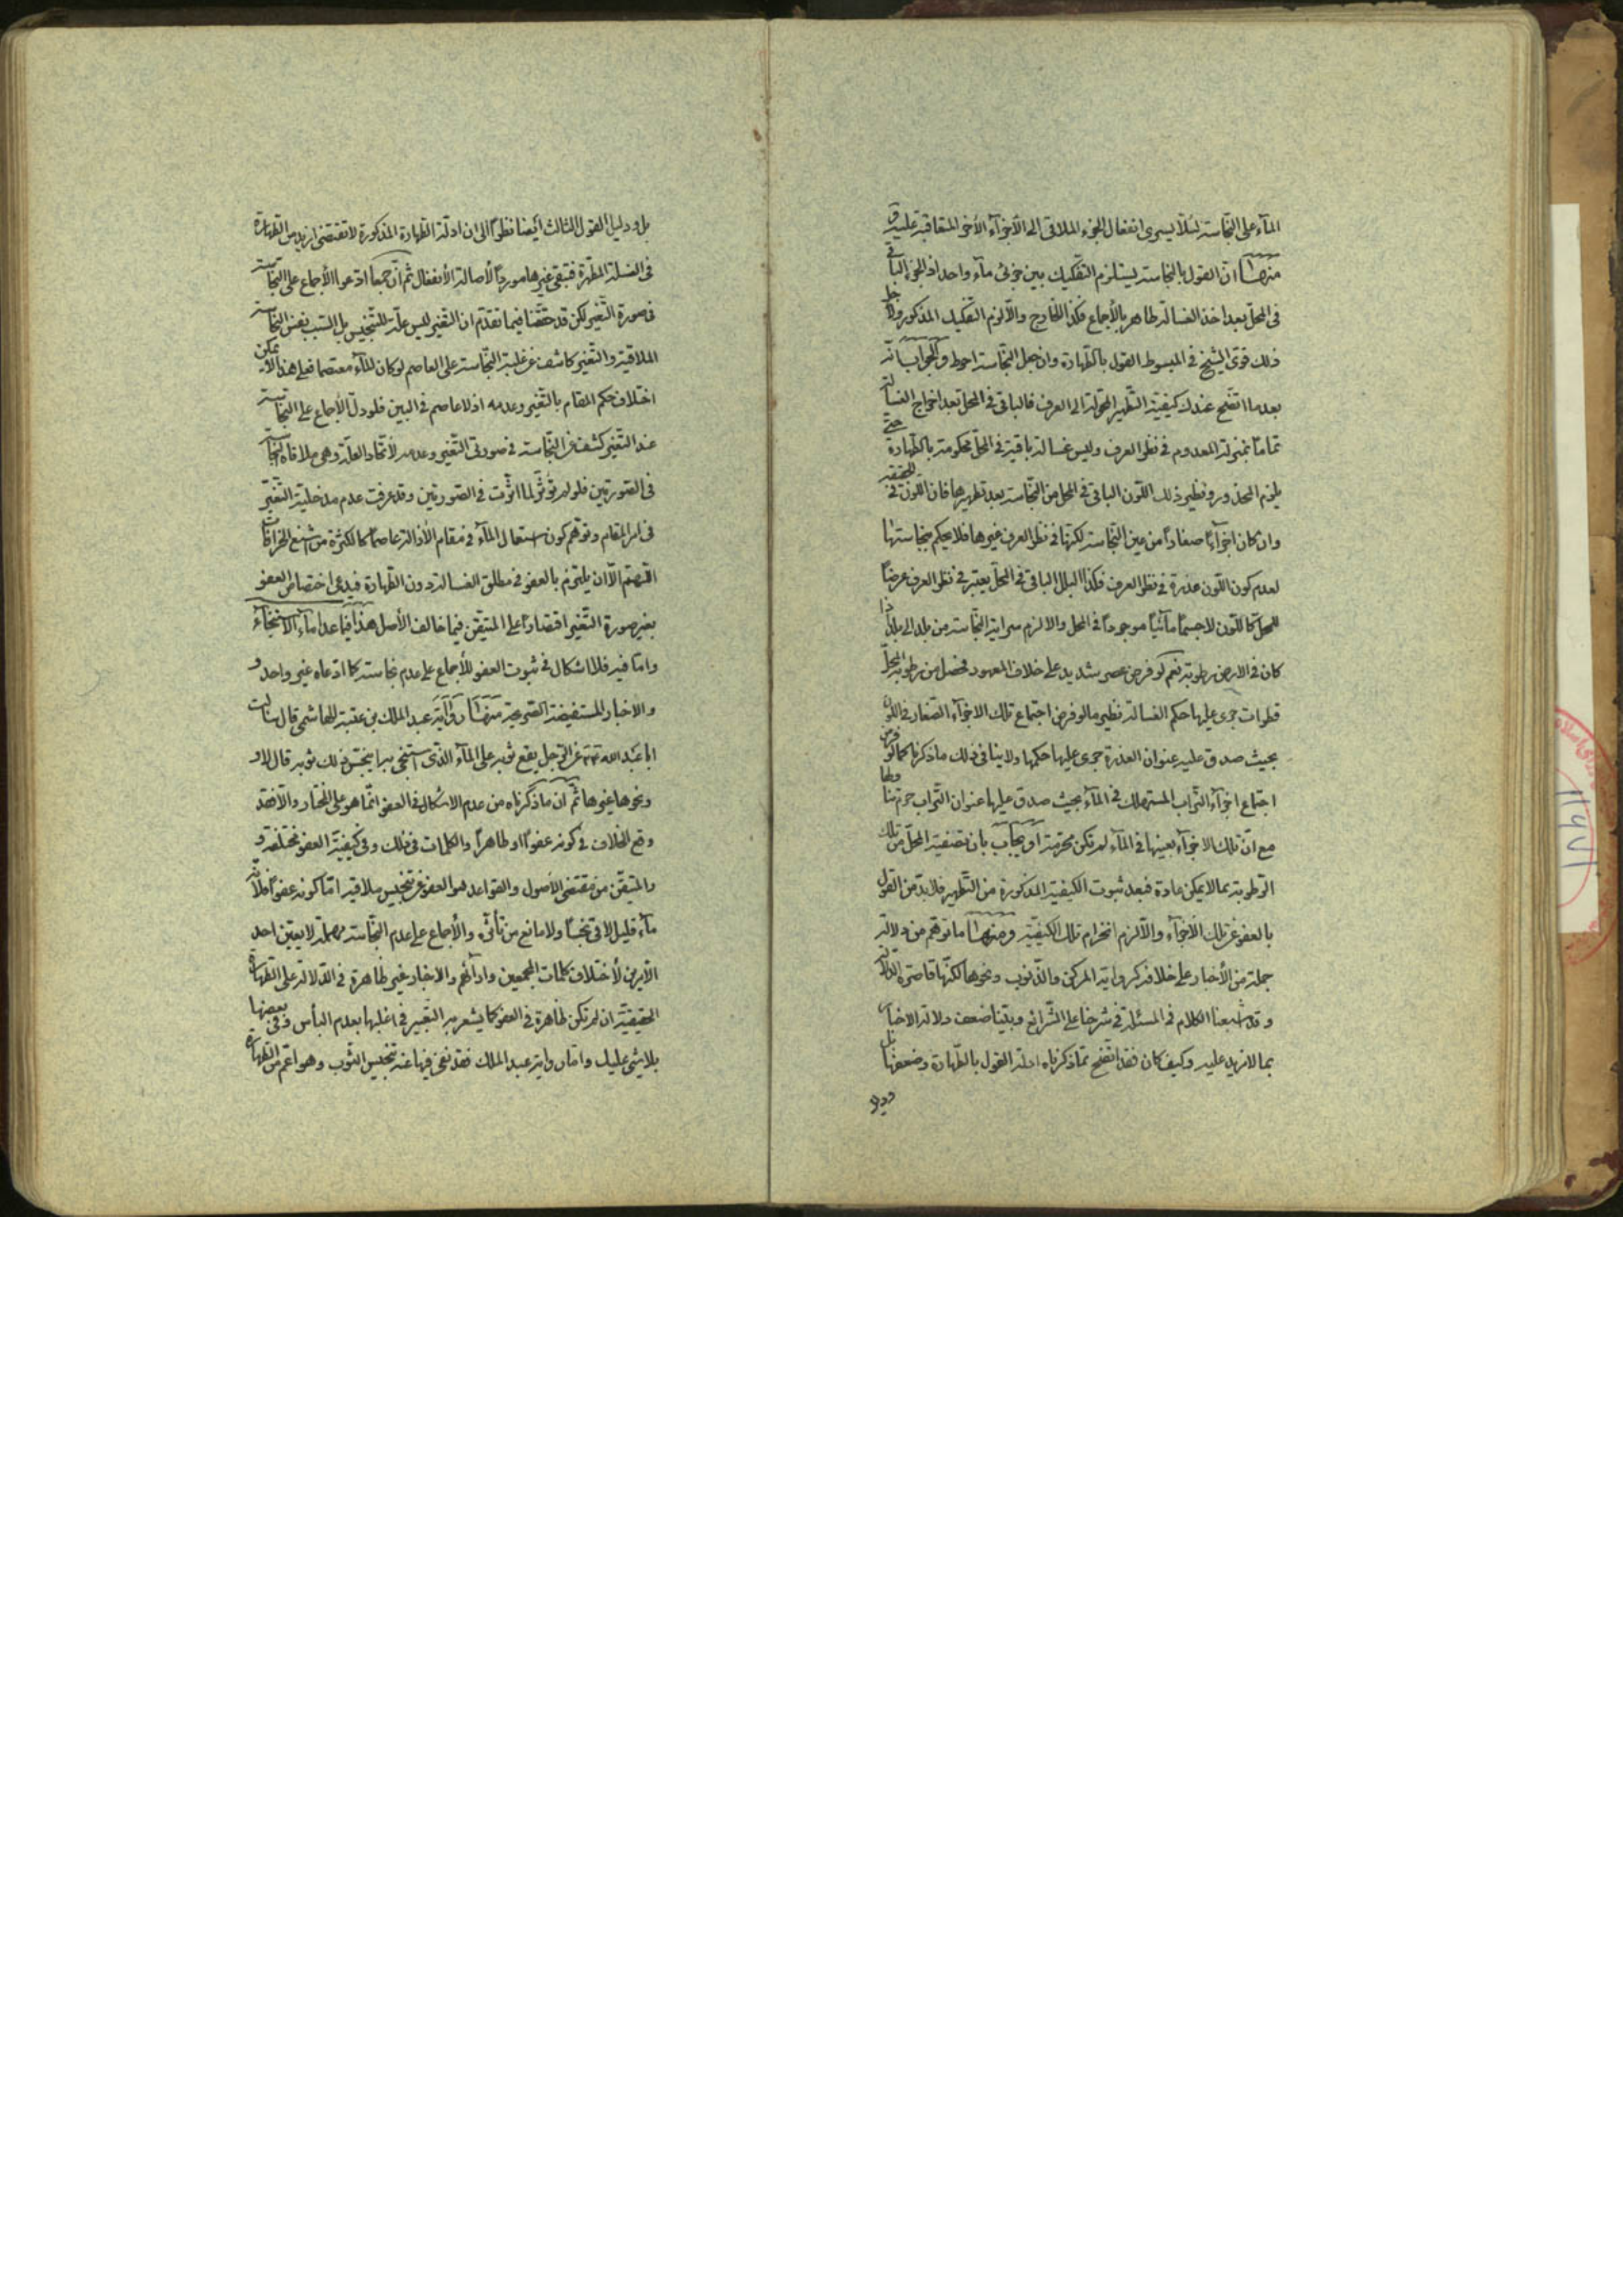 المآء على النّجاسة لئلّا يسرى انفعال الجزء الملاقى الى الأجزآء الأخر المتعاقبة عليه و
منها انّ القول بالنجاسة يستلزم التّفكيك بين جزئى مآء واحد اذ الجزء الباقى
فى المحلّ بعد اخذ الغسالة طاهر بالأجماع فكذا الخارج والّا لزم التفكيك المذكور ولاجل
ذلك قوّى الشيخ فى المبسوط القول بالطّهارة وان جعل النّجاسة احوط والجواب انّه
بعد ما اتضح عندك كيفيّة التّطهير المحوّلة الى العرف فالباقى فى المحل بعد اخراج الغسالة
تماماً بمنزلة المعدوم فى نظر العرف وليس غسالة باقية فى المحلّ محكومة بالطّهارة حتّى
يلزم المحذور ونظير ذلك اللّون الباقى فى المحل من النّجاسة بعد تطهيرها فان اللّون فى الحقيقة
وان كان اجزآءً صغاراً من عين النّجاسة لكنّها فى نظر العرف غيرها فلا يحكم بنجاستها
لعدم كون اللّون عذرة فى نظر العرف فكذا البلل الباقى فى المحلّ يعتبر فى نظر العرف عرضاً
للمحلّ كاللّون لا جسماً مآئيّاً موجوداً فى المحل والا لزم سراية النّجاسة من بلد الى بلد اذا
كان فى الارض رطوبة نعم لو فرض عصر شديد على خلاف المعهود فحصل من رطوبة المحلّ
قطرات جرى عليها حكم الغسالة نظير ما لو فرض اجتماع تلك الاجزآء الصّغار فى اللّون
بحيث صدق عليه عنوان العذرة جرى عليها حكمها ولا ينافى ذلك ما ذكرنا كما لو فرض
اجتماع اجزآء التّراب المستهلك فى المآء بحيث صدق عليها عنوان التّراب حرم تناولها
مع انّ تلك الاجزآء بعينها فى المآء لم تكن محرّمة او يجاب بانّ تصفية المحلّ من تلك
الرّطوبة بما لا يمكن عادة فبعد ثبوت الكيفيّة المذكورة من التّطهير فلا بدّ من القول
بالعفو عن تلك الأجزآء والّا لزم انخرام تلك الكيفيّة ومنها ما توهّم من دلالة
جملة من الأخبار على خلافه كرواية المركن والذّنوب ونحوها لكنّها قاصرة الدّلالة
وقد اشبعنا الكلام فى المسئلة فى شرحنا على الشّرائع وبيّنا ضعف دلالة الاخبار
بما لا مزيد عليه وكيف كان فقد اتّضح ممّا ذكرناه ادلّة القول بالطّهارة وضعفها بل
ودليل
بل ودليل القول الثالث أيضا نظراً الى ان ادلّة الطّهارة المذكورة لا تقتضى ازيد من الطّهارة
فى الغسلة المطهّرة فيبقى غيرها مورداً لأصالة الأنفعال ثمّ انّ جمعاً ادّعوا الأجماع على النّجاسة
فى صورة التّغير لكن قد حقّقنا فيما تقدّم ان التّغير ليس علّة للتّنجيس بل السّبب نفس النّجاسة
الملاقية والتّغير كاشف عن غلبة النّجاسة على العاصم لو كان للمآء معتصما فعلى هذا لا يمكن
اختلاف حكم المقام بالتّغير وعدمه اذ لا عاصم فى البين فلو دلّ الأجماع على النّجاسة
عند التّغير كشف عن النّجاسة فى صورتى التّغير وعدمه لأتّحاد العلّة وهى ملاقاة النّجاسة
فى الصّورتين فلو لم تؤثّر لما اثّرت فى الصّورتين وقد عرفت عدم مدخليّة التّغيّر
فى امر المقام وتوهّم كون استعمال المآء فى مقام الأزالة عاصماً كالكثرة من اشنع الخرافات
اللّهمّ الّا ان يلتزم بالعفو فى مطلق الغسالة دون الطّهارة فيدعى اختصاص العفو
بغير صورة التّغير اقتصاراً على المتيقّن فيما خالف الأصل هذا فيما عدا مآء الاستنجآء
وامّا فيه فلا اشكال فى ثبوت العفو للأجماع على عدم نجاسته كما ادّعاه غير واحد و
والاخبار المستفيضة الصّريحة منها رواية عبد الملك بن عتبة الهاشمى قال سالت
ابا عبد الله عن الرّجل يقع ثوبه على المآء الّذى استنجى به اينجّس ذلك ثوبه قال لا و
ونحوها غيرها ثمّ ان ما ذكرناه من عدم الاشكال فى العفو انّما هو على المختار والّا فقد
وقع الخلاف فى كونه عفواً او طاهراً والكلمات فى ذلك وفى كيفيّة العفو مختلفة و
والمتيقّن من مقتضى الأصول والقواعد هو العفو عن تنجيس ملاقيه امّا كونه عفواً فلأنّه
مآء قليل لاقى نجساً ولا مانع من تأثّره والأجماع على عدم النّجاسة مهملة لا يعيّن احد
الأمرين لأختلاف كلمات المجمعين وارآئهم والاخبار غير ظاهرة فى الدّلالة على الطّهارة
الحقيقيّة ان لم تكن ظاهرة فى العفو كما يشعر به التّعبير فى اغلبها بعدم البأس وفى بعضها
بلا شىء عليك وامّا رواية عبد الملك فقد نفى فيها عنه تنجيس الثّوب وهو اعمّ من الطّهارة